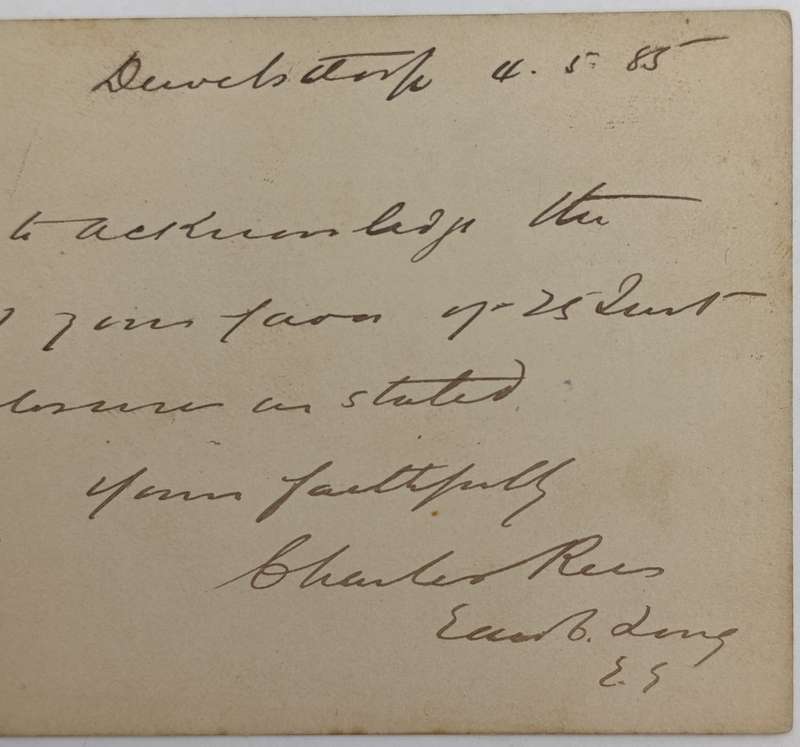 Dewetsdorp 4. 5. 85
to acknowledge the
your favor of 25 Inst
closures as stated
Yours faithfully
Charles Rees